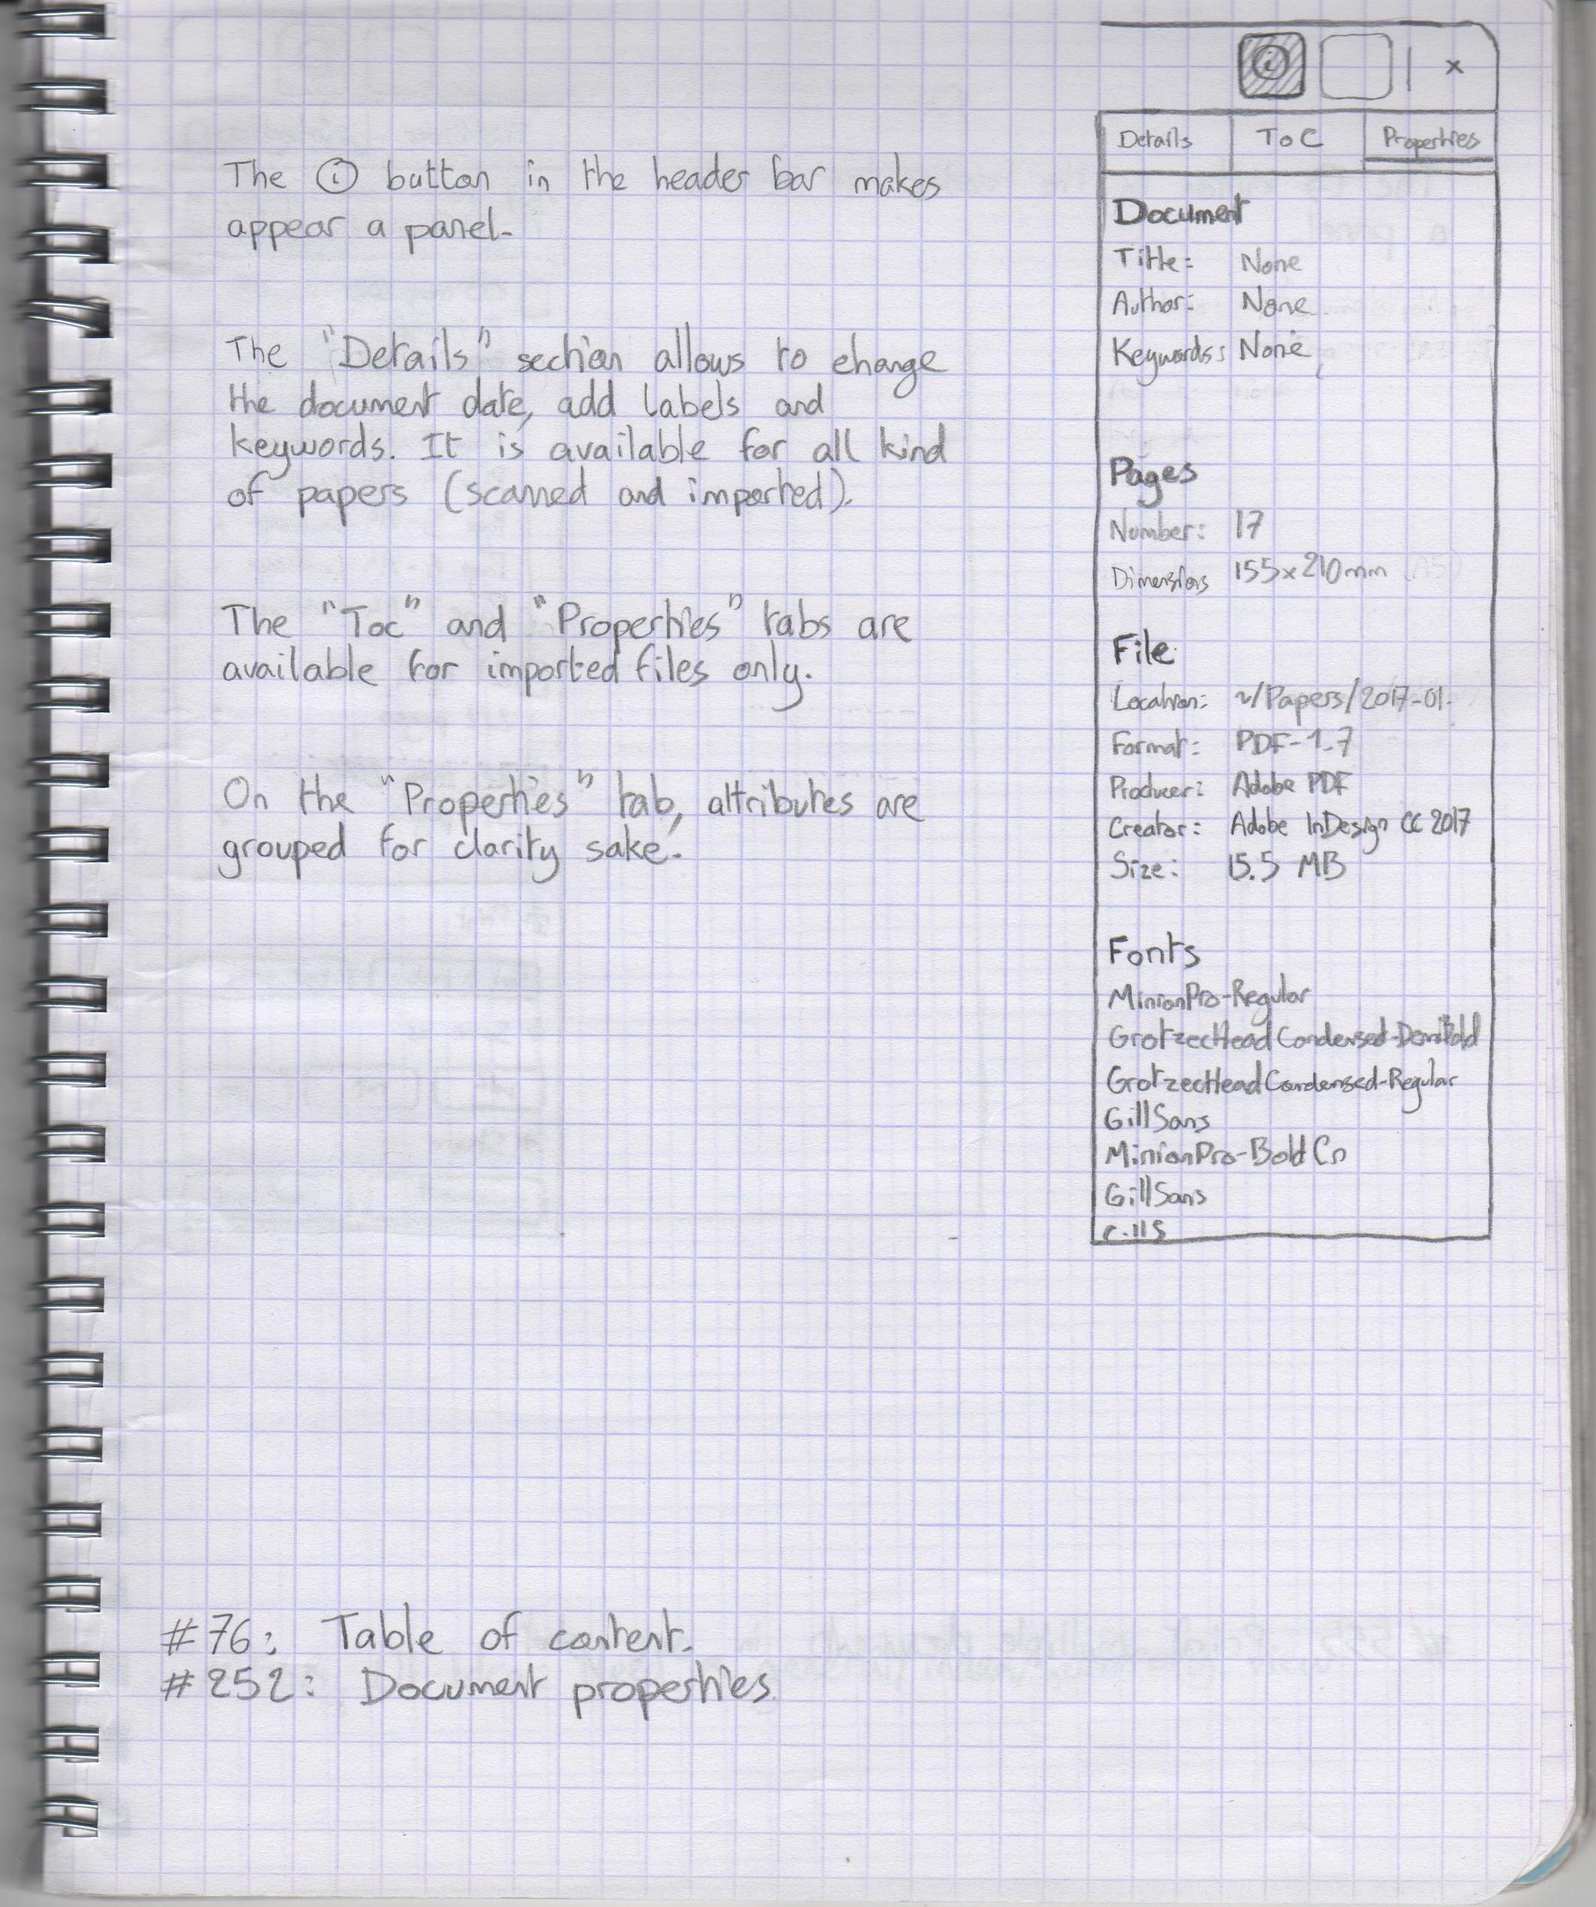 The ⓘ button in the header bar makes
appear a panel.
The "Details" section allows to change
the document date, add labels and
keywords. It is available for all kind
of papers (scanned and imported).
The "Toc" and "Properties" tabs are
available for imported files only.
On the "Properties" tab, attributes are
grouped for clarity sake.
#76: Table of content.
#252: Document properties
i | x
Details ToC Properties
Document
Title: None
Author: None
Keywords: None
Pages
Number: 17
Dimensions 155x210mm
File
Location: ~/Papers/2017-01.
Format: PDF-1.7
Producer: Adobe PDF
Creator: Adobe InDesign CC 2017
Size: 15.5 MB
Fonts
MinionPro-Regular
GrotzecHeadCondensed-DemiBold
GrotzecHeadCondensed-Regular
GillSans
MinionPro-BoldCn
GillSans